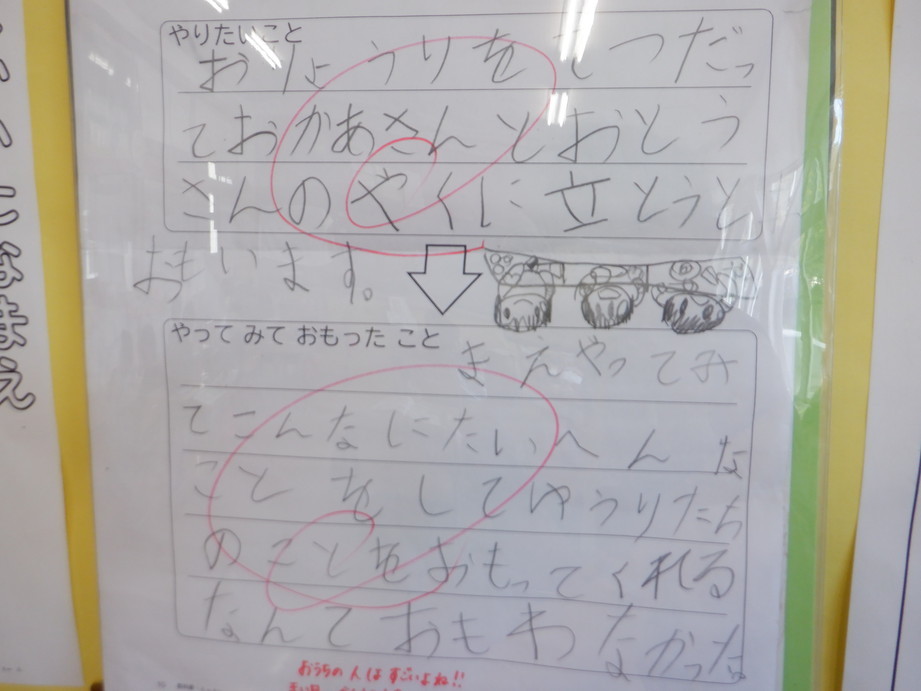 やりたいこと
おりょうりをてつだっ
ておかあさんとおとう
さんのやくに立とうと
おもいます。
やって みて おもった こと
まえやってみ
てこんなにたいへんな
ことをしてゆうりたち
のことをおもってくれる
なんておもわなかった。
おうちの人はすごいよね!!
なまえ